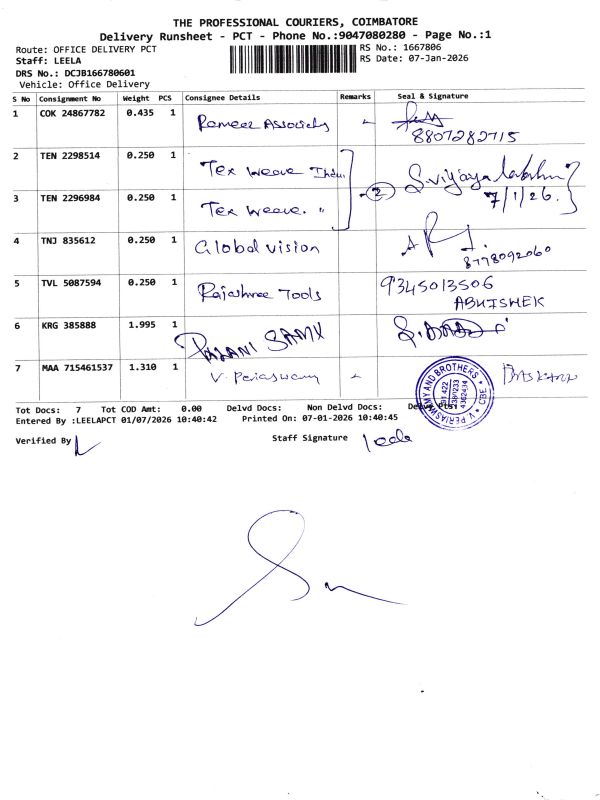 THE PROFESSIONAL COURIERS, COIMBATORE
Delivery Runsheet - PCT - Phone No.:9047080280 - Page No.:1
Route: OFFICE DELIVERY PCT
RS No.: 1667806
Staff: LEELA
RS Date: 07-Jan-2026
DRS No.: DCJB166780601
Vehicle: Office Delivery
S No Consignment No Weight PCS Consignee Details Remarks Seal & Signature
1 COK 24867782 0.435 1 Rameez Associates
8807282715
2 TEN 2298514 0.250 1 Tex weave
3 TEN 2296984 0.250 1 Tex weave. " 2 S.vijayalakshmi 7/1/26.
4 TNJ 835612 0.250 1 Global vision
8778092060
5 TVL 5087594 0.250 1 Rajashree Tools 9345013506
ABHISHEK
6 KRG 385888 1.995 1 PALANI SAMY
7 MAA 715461537 1.310 1 V. Periaswamy
V. PERIASWAMY AND BROTHERS * CBE *
Tot Docs: 7 Tot COD Amt: 0.00 Delvd Docs: Non Delvd Docs:
Entered By :LEELAPCT 01/07/2026 10:40:42 Printed On: 07-01-2026 10:40:45
Verified By Staff Signature leela